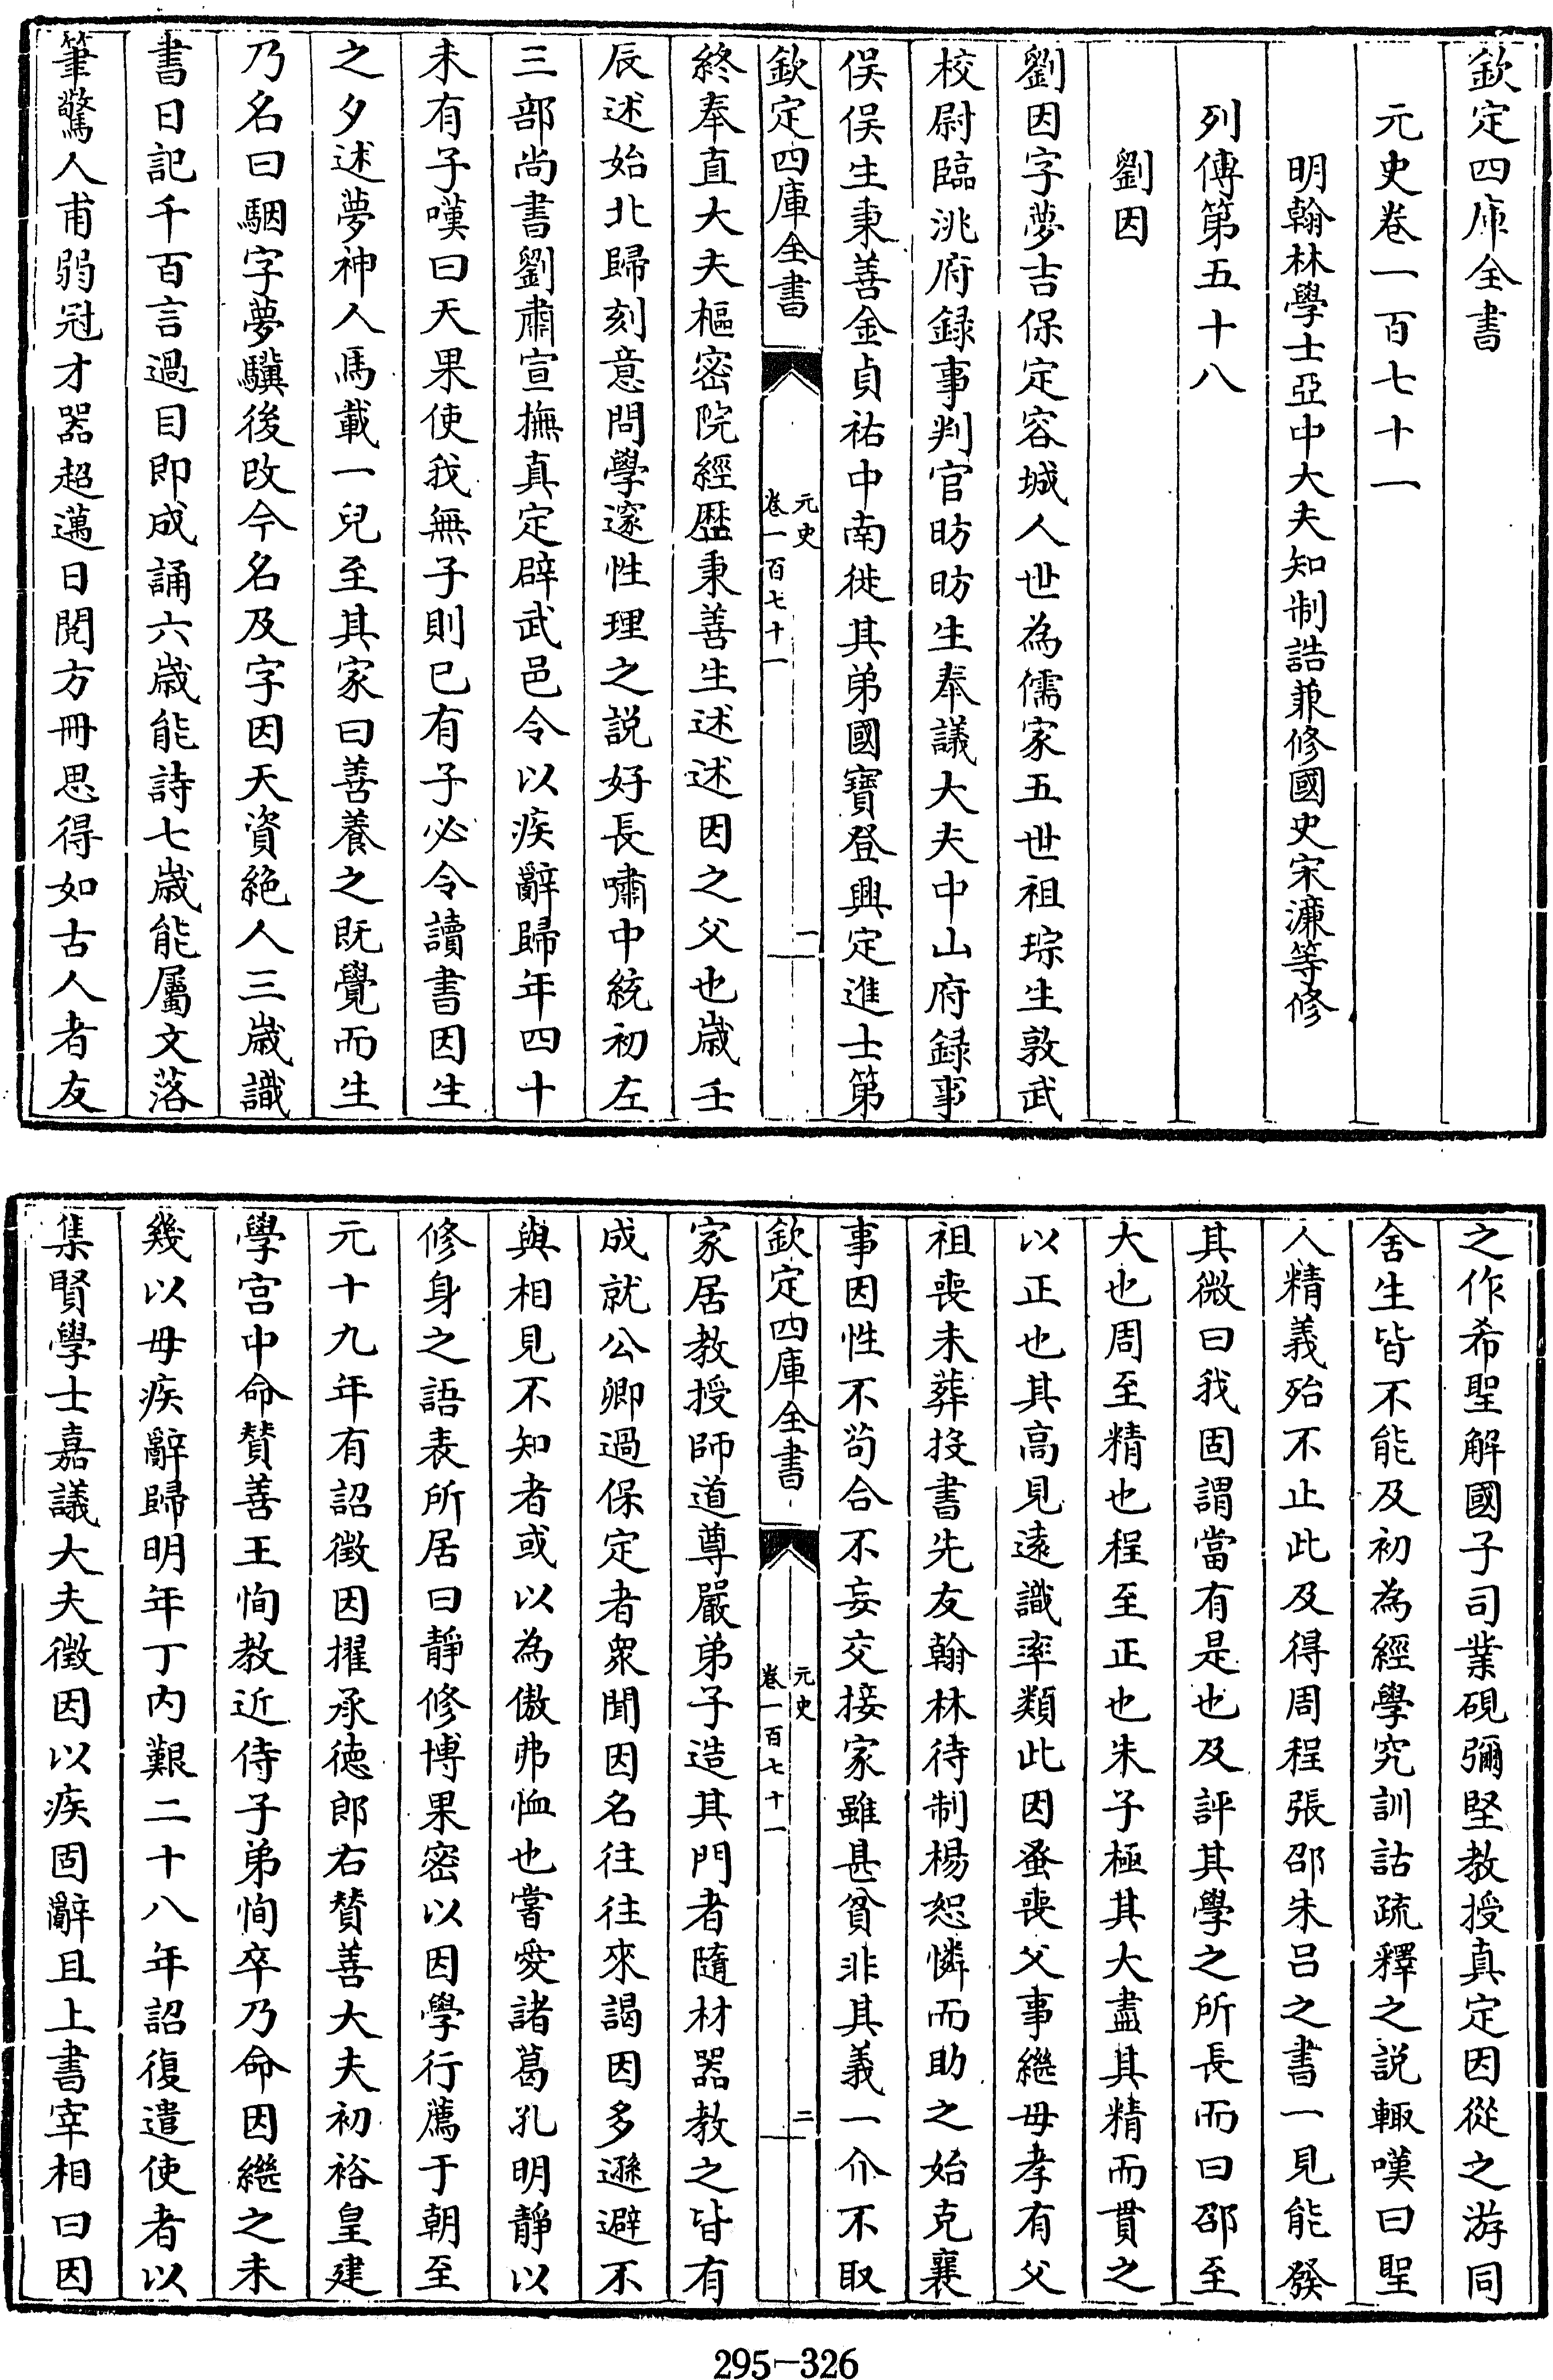 欽定四庫全書
元史卷一百七十一
明翰林學士亞中大夫知制誥兼修國史宋濂等修
列傳第五十八
劉因
劉因字夢吉保定容城人世為儒家五世祖琮生敦武
校尉臨洮府録事判官昉昉生奉議大夫中山府録事
俁俁生秉善金貞祐中南徙其弟國寶登興定進士第
欽定四庫全書
元史
卷一百七十一
一
終奉直大夫樞密院經歷秉善生述述因之父也歲壬
辰述始北歸刻意問學邃性理之説好長嘯中統初左
三部尚書劉肅宣撫真定辟武邑令以疾辭歸年四十
未有子嘆曰天果使我無子則已有子必令讀書因生
之夕述夢神人馬載一兒至其家曰善養之既覺而生
乃名曰駰字夢驥後改今名及字因天資絶人三歲識
書日記千百言過目即成誦六歲能詩七歲能屬文落
筆驚人甫弱冠才器超邁日閱方冊思得如古人者友
之作希聖解國子司業硯彌堅教授真定因從之游同
舍生皆不能及初為經學究訓詁疏釋之説輙嘆曰聖
人精義殆不止此及得周程張邵朱吕之書一見能發
其微曰我固謂當有是也及評其學之所長而曰邵至
大也周至精也程至正也朱子極其大盡其精而貫之
以正也其高見遠識率類此因蚤喪父事繼母孝有父
祖喪未葬投書先友翰林待制楊恕憐而助之始克襄
事因性不茍合不妄交接家雖甚貧非其義一介不取
欽定四庫全書
元史
卷一百七十一
二
家居教授師道尊嚴弟子造其門者隨材器教之皆有
成就公卿過保定者衆聞因名往往來謁因多遜避不
與相見不知者或以為傲弗恤也嘗愛諸葛孔明靜以
修身之語表所居曰靜修博果密以因學行薦于朝至
元十九年有詔徴因擢承徳郎右賛善大夫初裕皇建
學宫中命賛善王恂教近侍子弟恂卒乃命因繼之未
幾以母疾辭歸明年丁内艱二十八年詔復遣使者以
集賢學士嘉議大夫徴因以疾固辭且上書宰相曰因
295-326